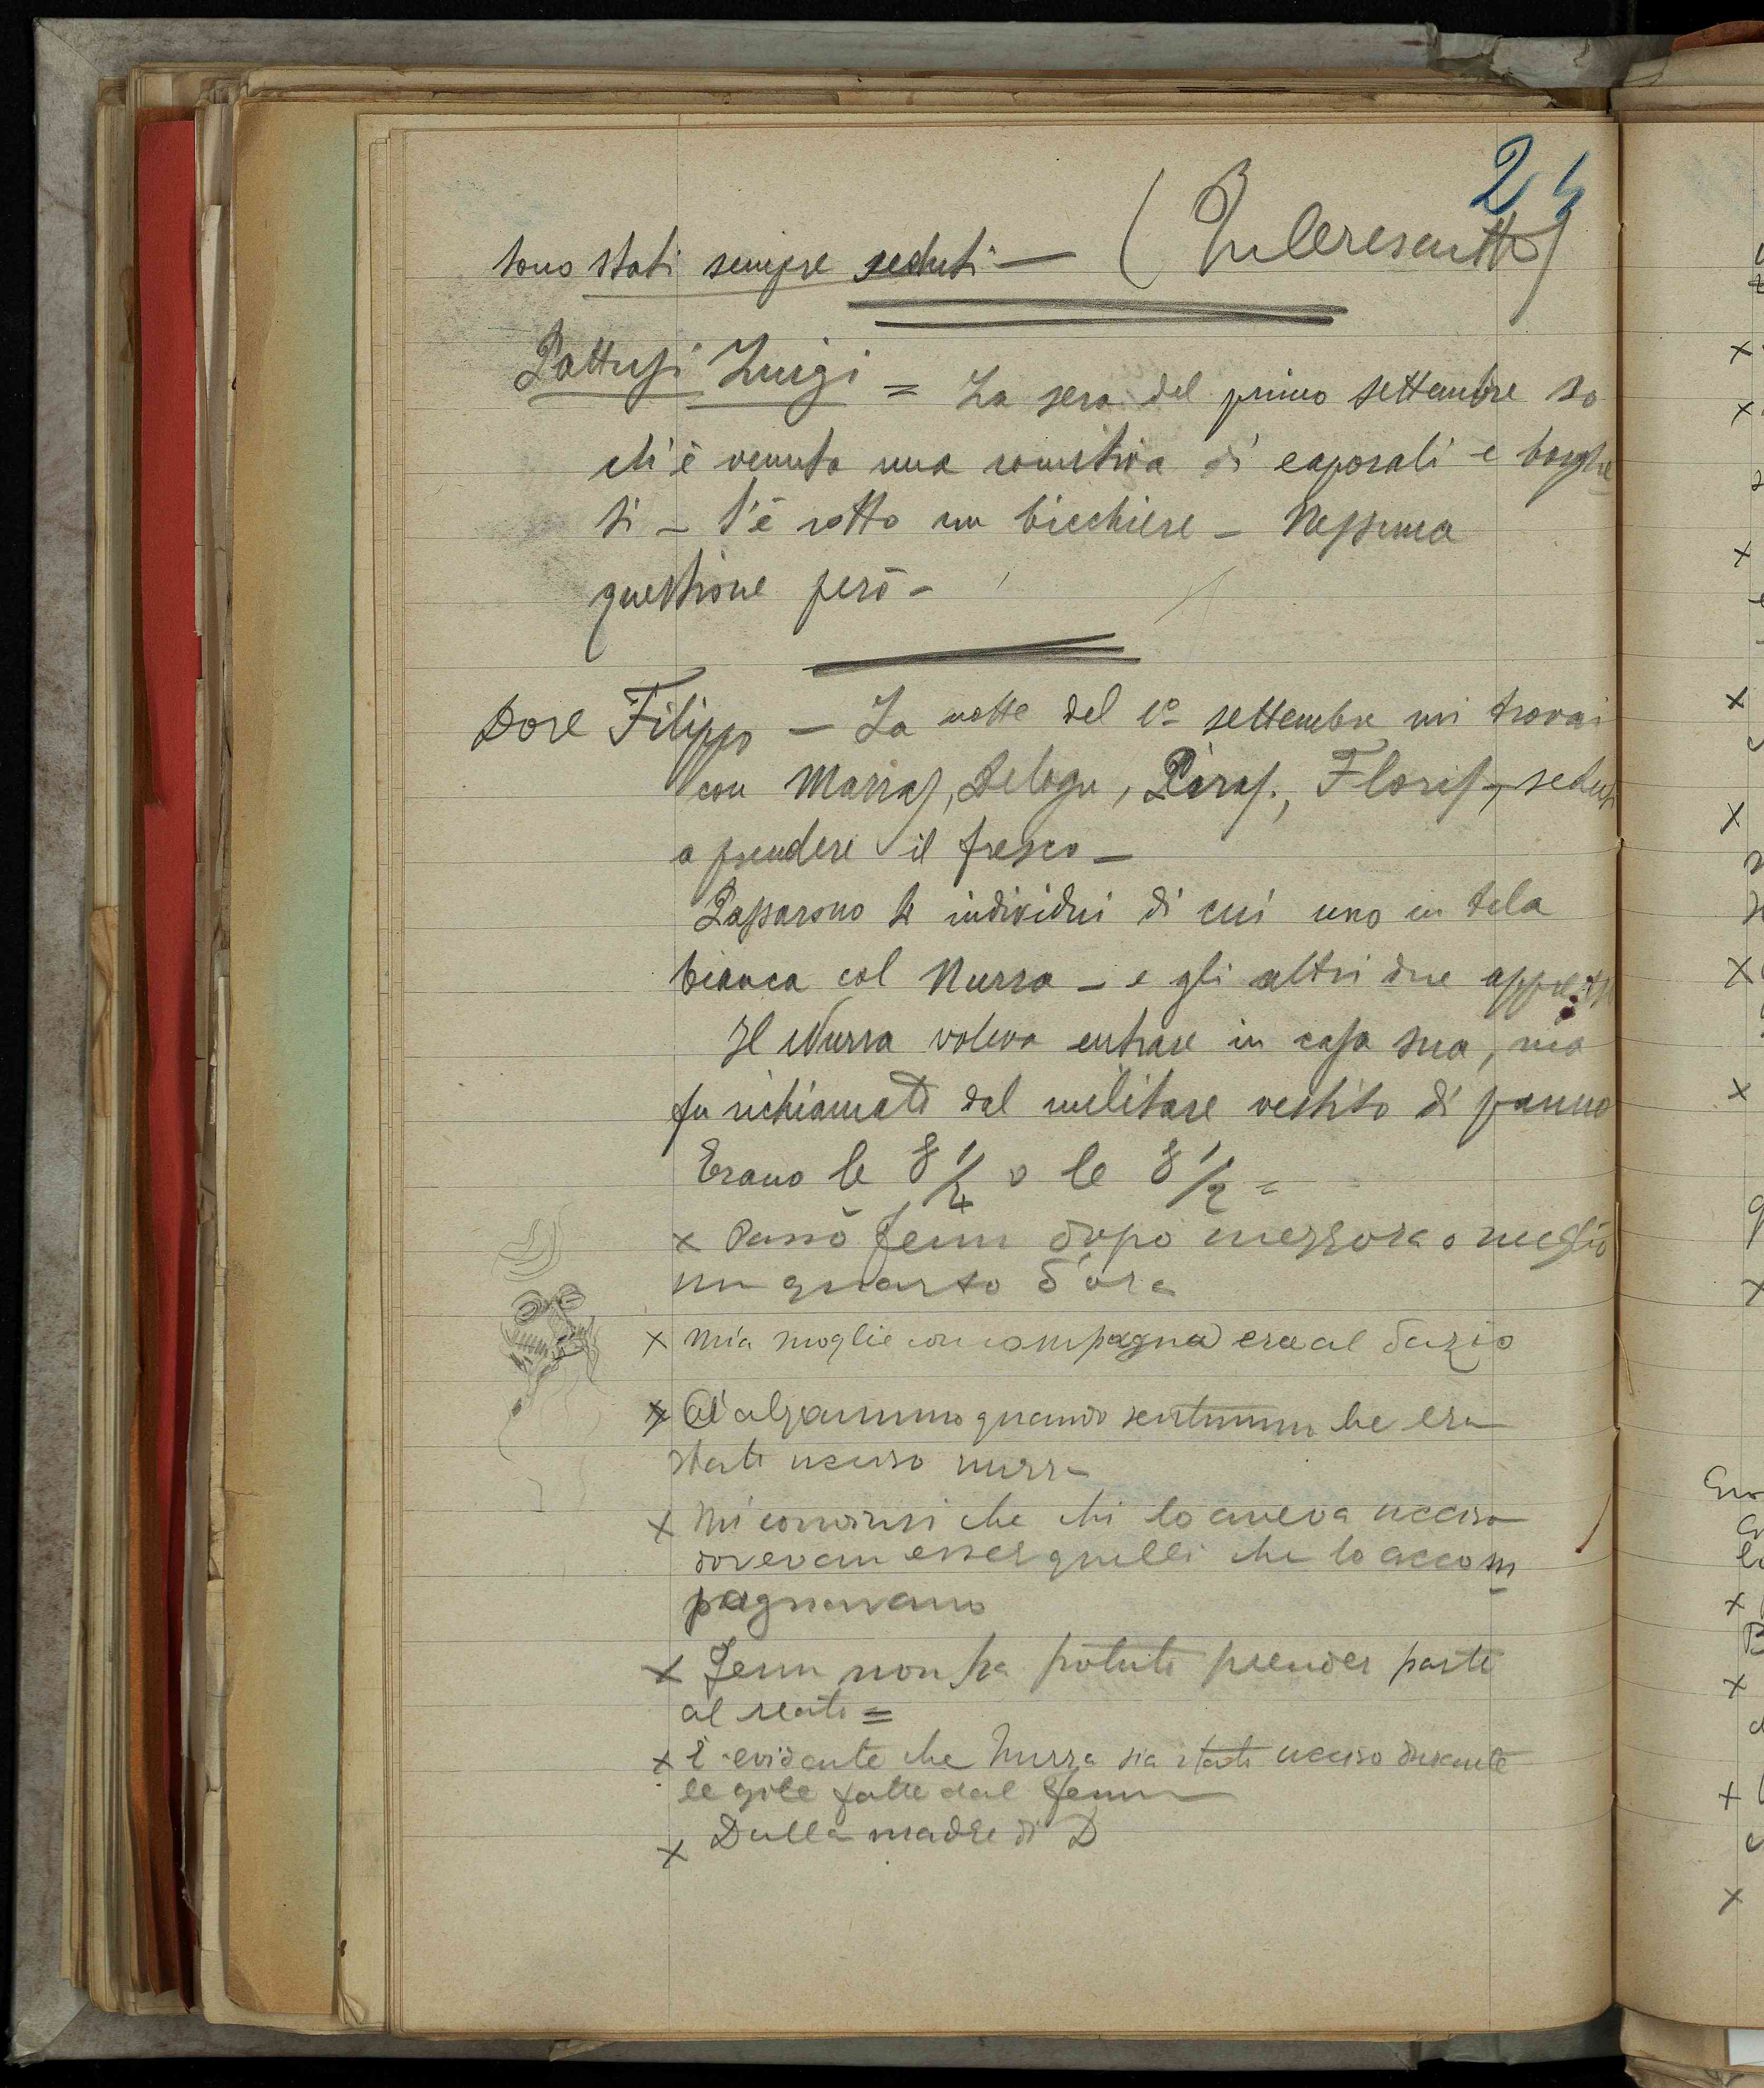 24
sono stati sempre seduti — (Interesante)
Pattusi Luigi = La sera del primo settembre so
che è venuta una comitiva di caporali e borghe
si – S'è rotto un bicchiere – Nessuna
questione però –
Dore Filippo – La notte del 1º settembre mi trovai
con Marras, Delogu, Piras., Floris, seduti
a prendere il fresco –
Passarono 4 individui di cui uno in tela
bianca col Nurra – e gli altri due appresso
Il Nurra voleva entrare in casa sua, ma
fu richiamato dal militare vestito di panno
Erano le 8 1/4 o le 8 1/2 =
x Passò Fenu dopo mezzora o meglio
un quarto d'ora
x Mia moglie con compagna era al dazio
x Ci alzammo quando sentimmo che era
stato ucciso Nurra
x Mi convinsi che chi lo aveva ucciso
dovevan esser quelli che lo accom
pagnavano
x Fenu non ha potuto prender parte
al reato =
x È evidente che Nurra sia stato ucciso durante
le gite fatte dal Fenu
x Dalla madre di D